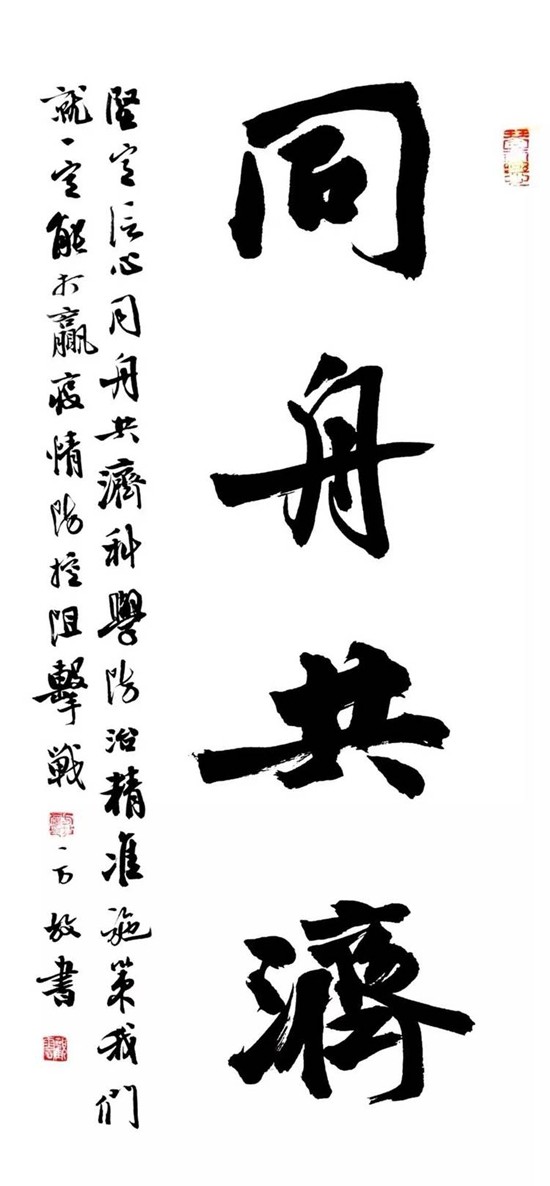 同舟共濟
堅定信心同舟共濟科學防治精准施策我們
就一定能打贏疫情防控阻擊戰
一方敬書